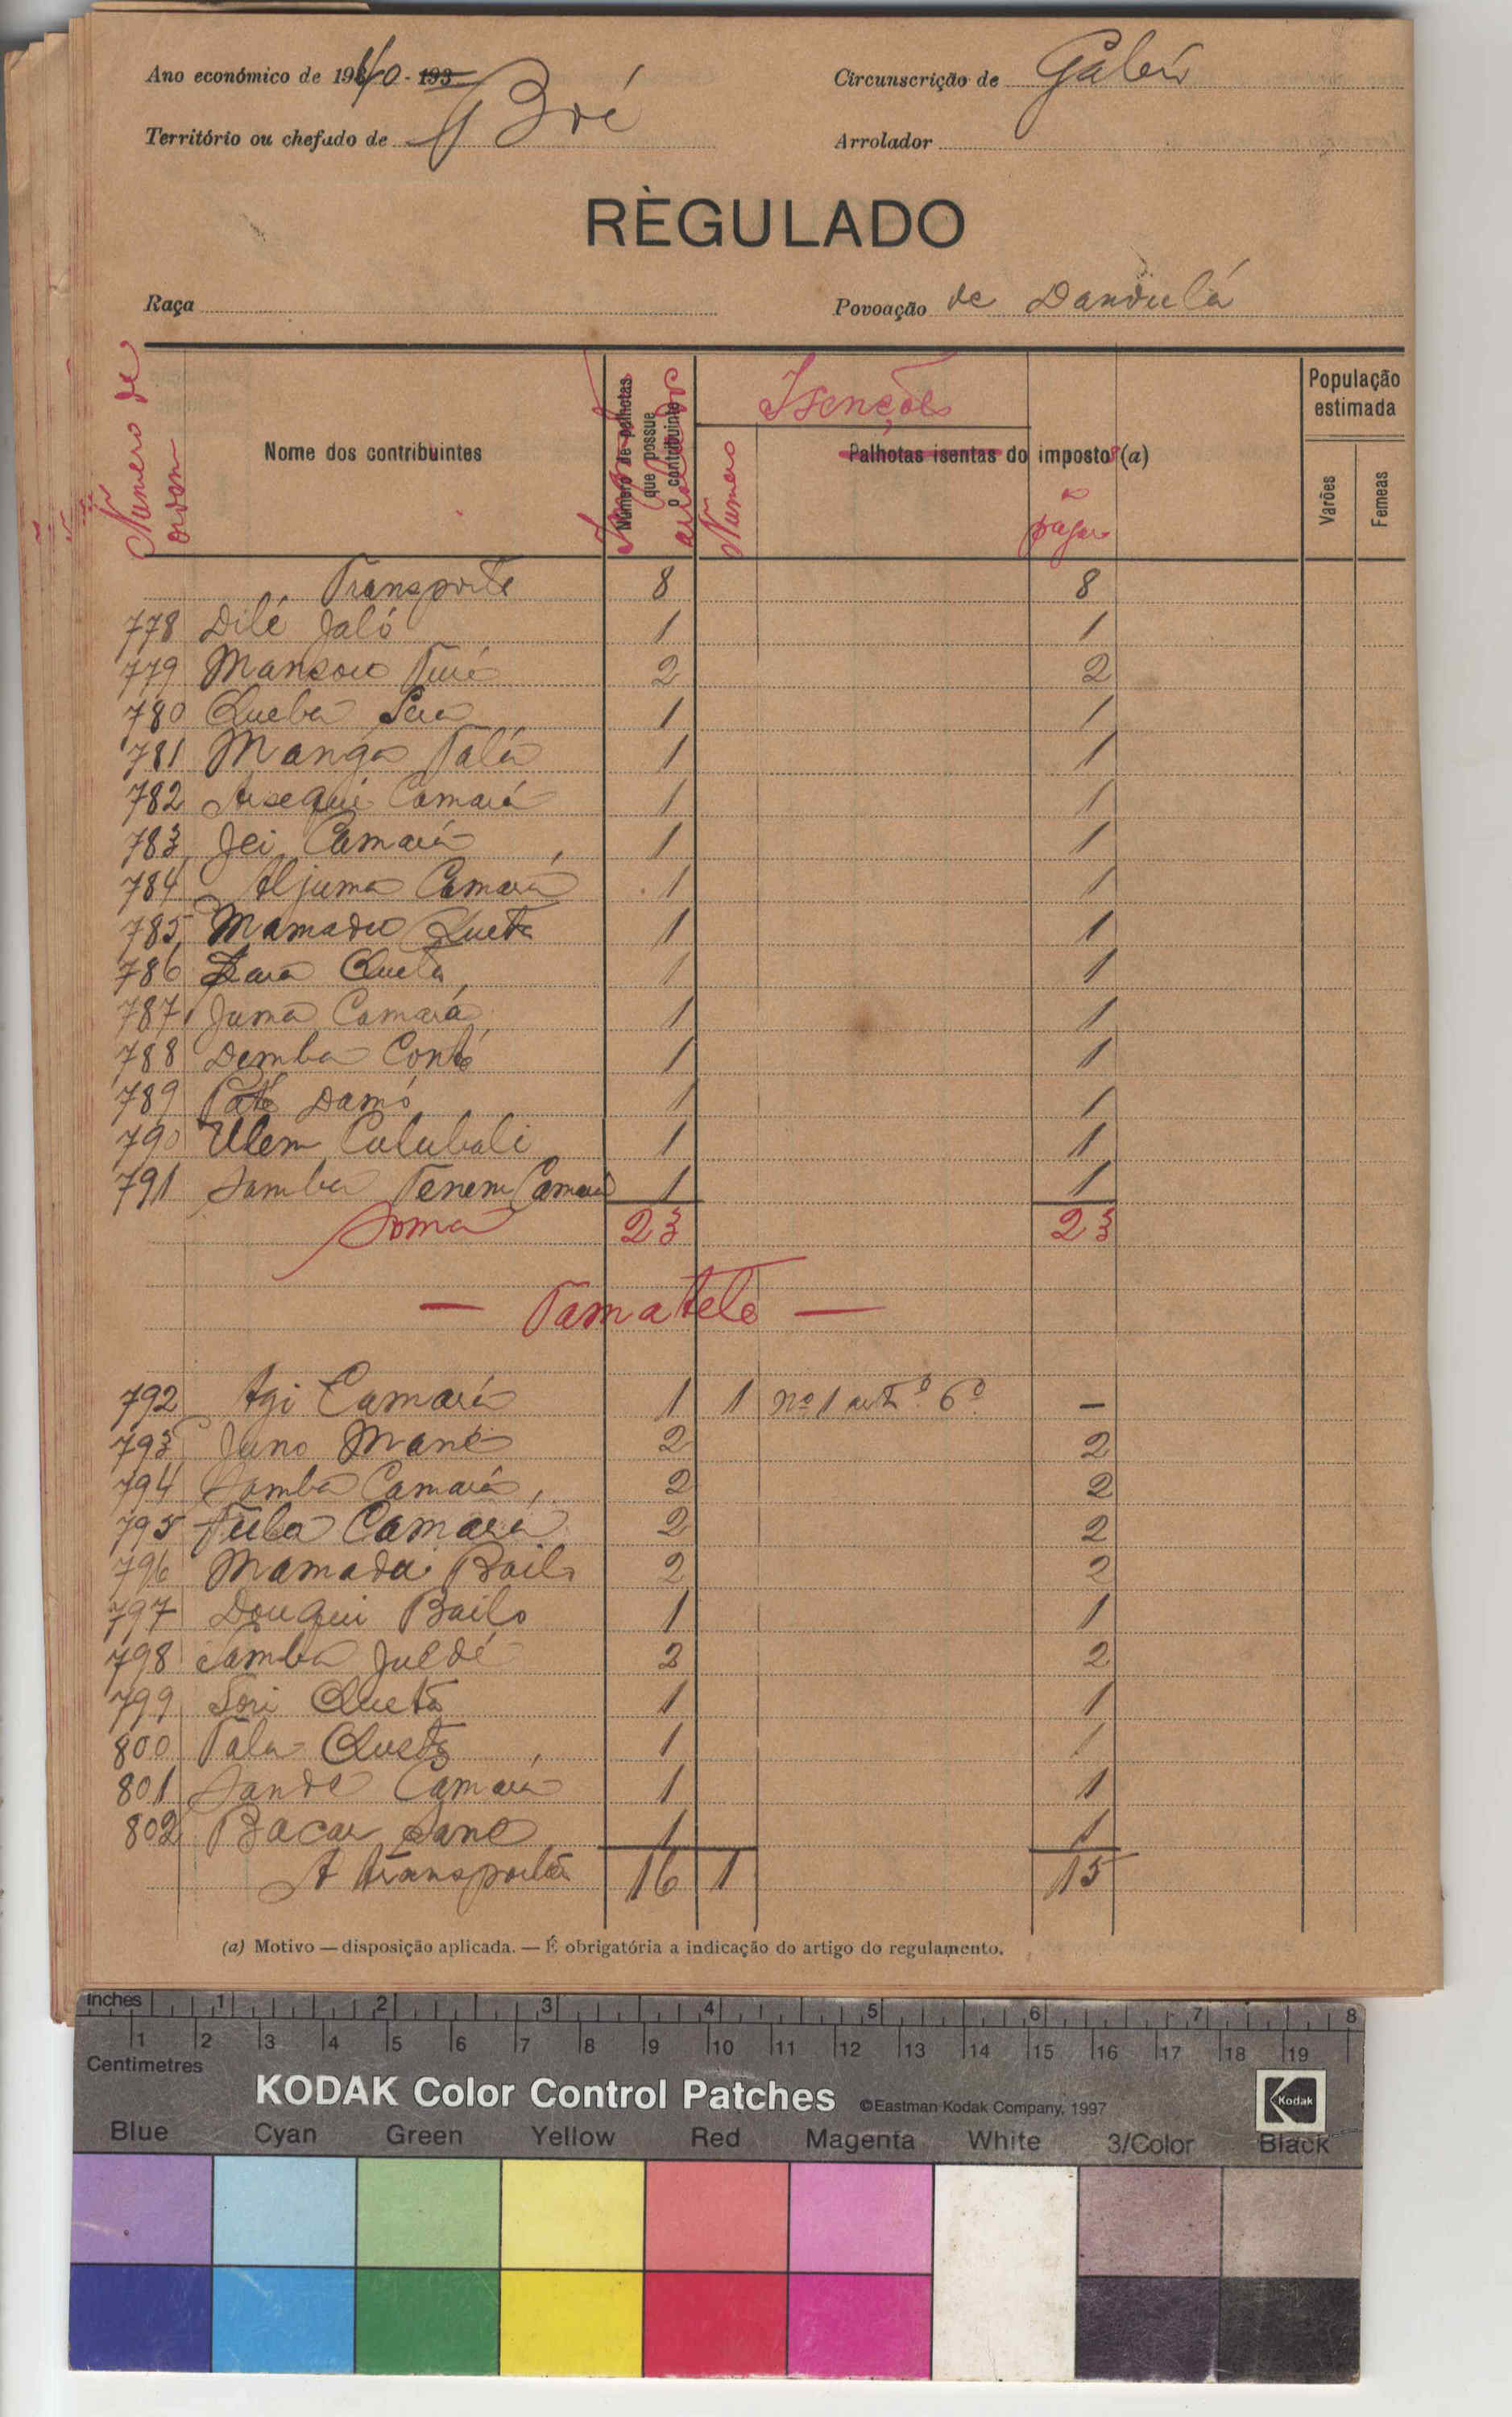 Ano económico de 1940 - 193
Circunscrição de Gabú
Território ou chefado de Boé
Arrolador
RÈGULADO
Raça
Povoação de Dandulá
Numero de ordem
Nome dos contribuintes
Número de palhotas que possue o contribuinte
Isenções
Numero
Palhotas isentas do imposto (a)
a pagar
População estimada
Varões
Femeas
Transporte 8 8
778 Dilé Jaló 1 1
779 Mansou Turé 2 2
780 Queba 1 1
781 Manga Talá 1 1
782 Camará 1 1
783 Jei Camará 1 1
784 Aljuma Camará 1 1
785 Mamadu Queta 1 1
786 Queta 1 1
787 Juma Camará 1 1
788 Demba Conté 1 1
789 Paté Damó 1 1
790 Ulem Culubali 1 1
791 Samba Tenem Camará 1 1
Soma 23 23
— Tamatelé —
792 Agi Camará 1 1 nº 1 artº. 6º. —
793 Juno Mané 2 2
794 Samba Camará 2 2
795 Tula Camará 2 2
796 Mamadu Bailo 2 2
797 Douqui Bailo 1 1
798 Samba Juldé 2 2
799 Sori Queta 1 1
800 Tala Queta 1 1
801 Sande Camará 1 1
802 Bacar Sané 1 1
A transportar 16 1 15
(a) Motivo — disposição aplicada. — É obrigatória a indicação do artigo do regulamento.
inches 1 2 3 4 5 6 7 8
1 2 3 4 5 6 7 8 9 10 11 12 13 14 15 16 17 18 19
Centimetres
KODAK Color Control Patches ©Eastman Kodak Company, 1997 Kodak
Blue Cyan Green Yellow Red Magenta White 3/Color Black